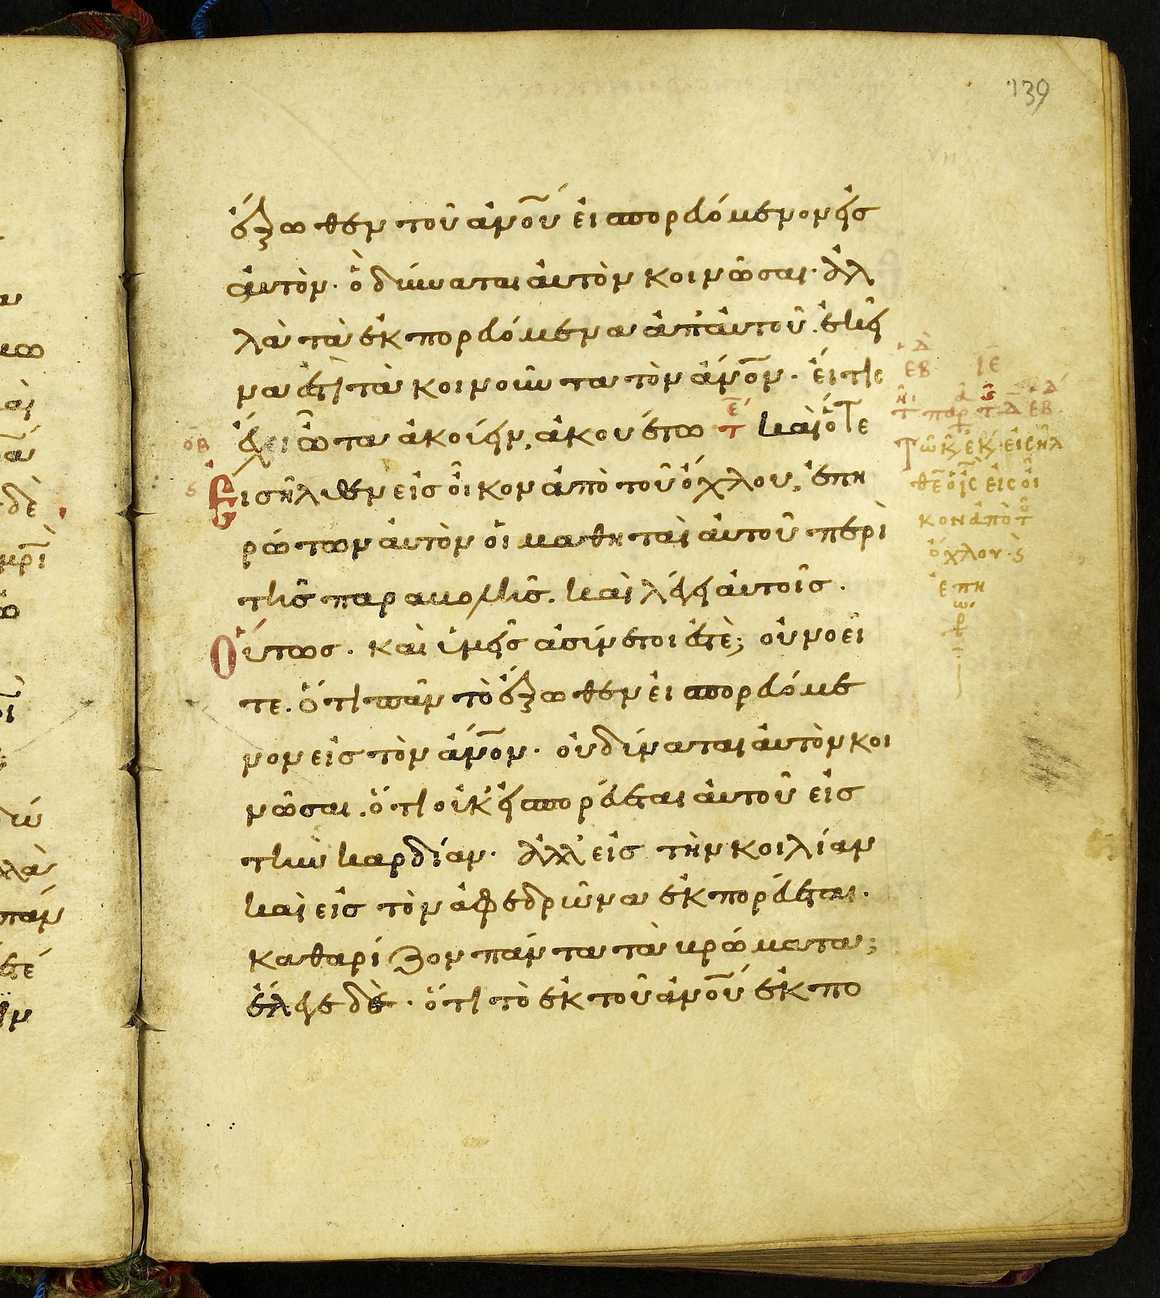 139
ἔξωθεν τοῦ ἀνου εἰσπορευόμενον εἰς
αὐτὸν· ὃ δύναται αὐτὸν κοινῶσαι· ἀλ
λὰ τὰ ἐκπορευόμενα ἀπ' αὐτοῦ. ἐκεῖ
να ἐστὶ τὰ κοινοῦντα τὸν ἄνον· εἴ τις
ἔχει ὦτα ἀκούειν, ἀκουέτω καὶ ὅτε
εἰσῆλθεν εἰς οἶκον ἀπὸ τοῦ ὄχλου, ἐπη
ρώτων αὐτὸν οἱ μαθηταὶ αὐτοῦ περὶ
τῆς παραβολῆς. καὶ λέγει αὐτοῖς.
Οὕτως. καὶ ὑμεῖς ἀσύνετοι ἐστὲ; οὐ νοεῖ
τε. ὅτι πᾶν τὸ ἔξωθεν εἰσπορευόμε
νον εἰς τὸν ἄνον· οὐ δύναται αὐτὸν κοι
νῶσαι. ὅτι οὐκ εἰσπορεύεται αὐτοῦ εἰς
τὴν καρδίαν· ἀλλ' εἰς τὴν κοιλίαν
καὶ εἰς τὸν ἀφεδρῶνα ἐκπορεύεται·
καθαρίζον πάντα τὰ βρώματα;
ἔλεγε δὲ· ὅτι τὸ ἐκ τοῦ ἀνου ἐκπο
οβ
εἰσῆλ
εἰς οἶ
κον ἀπὸ τ
ὄχλου
ἐπη